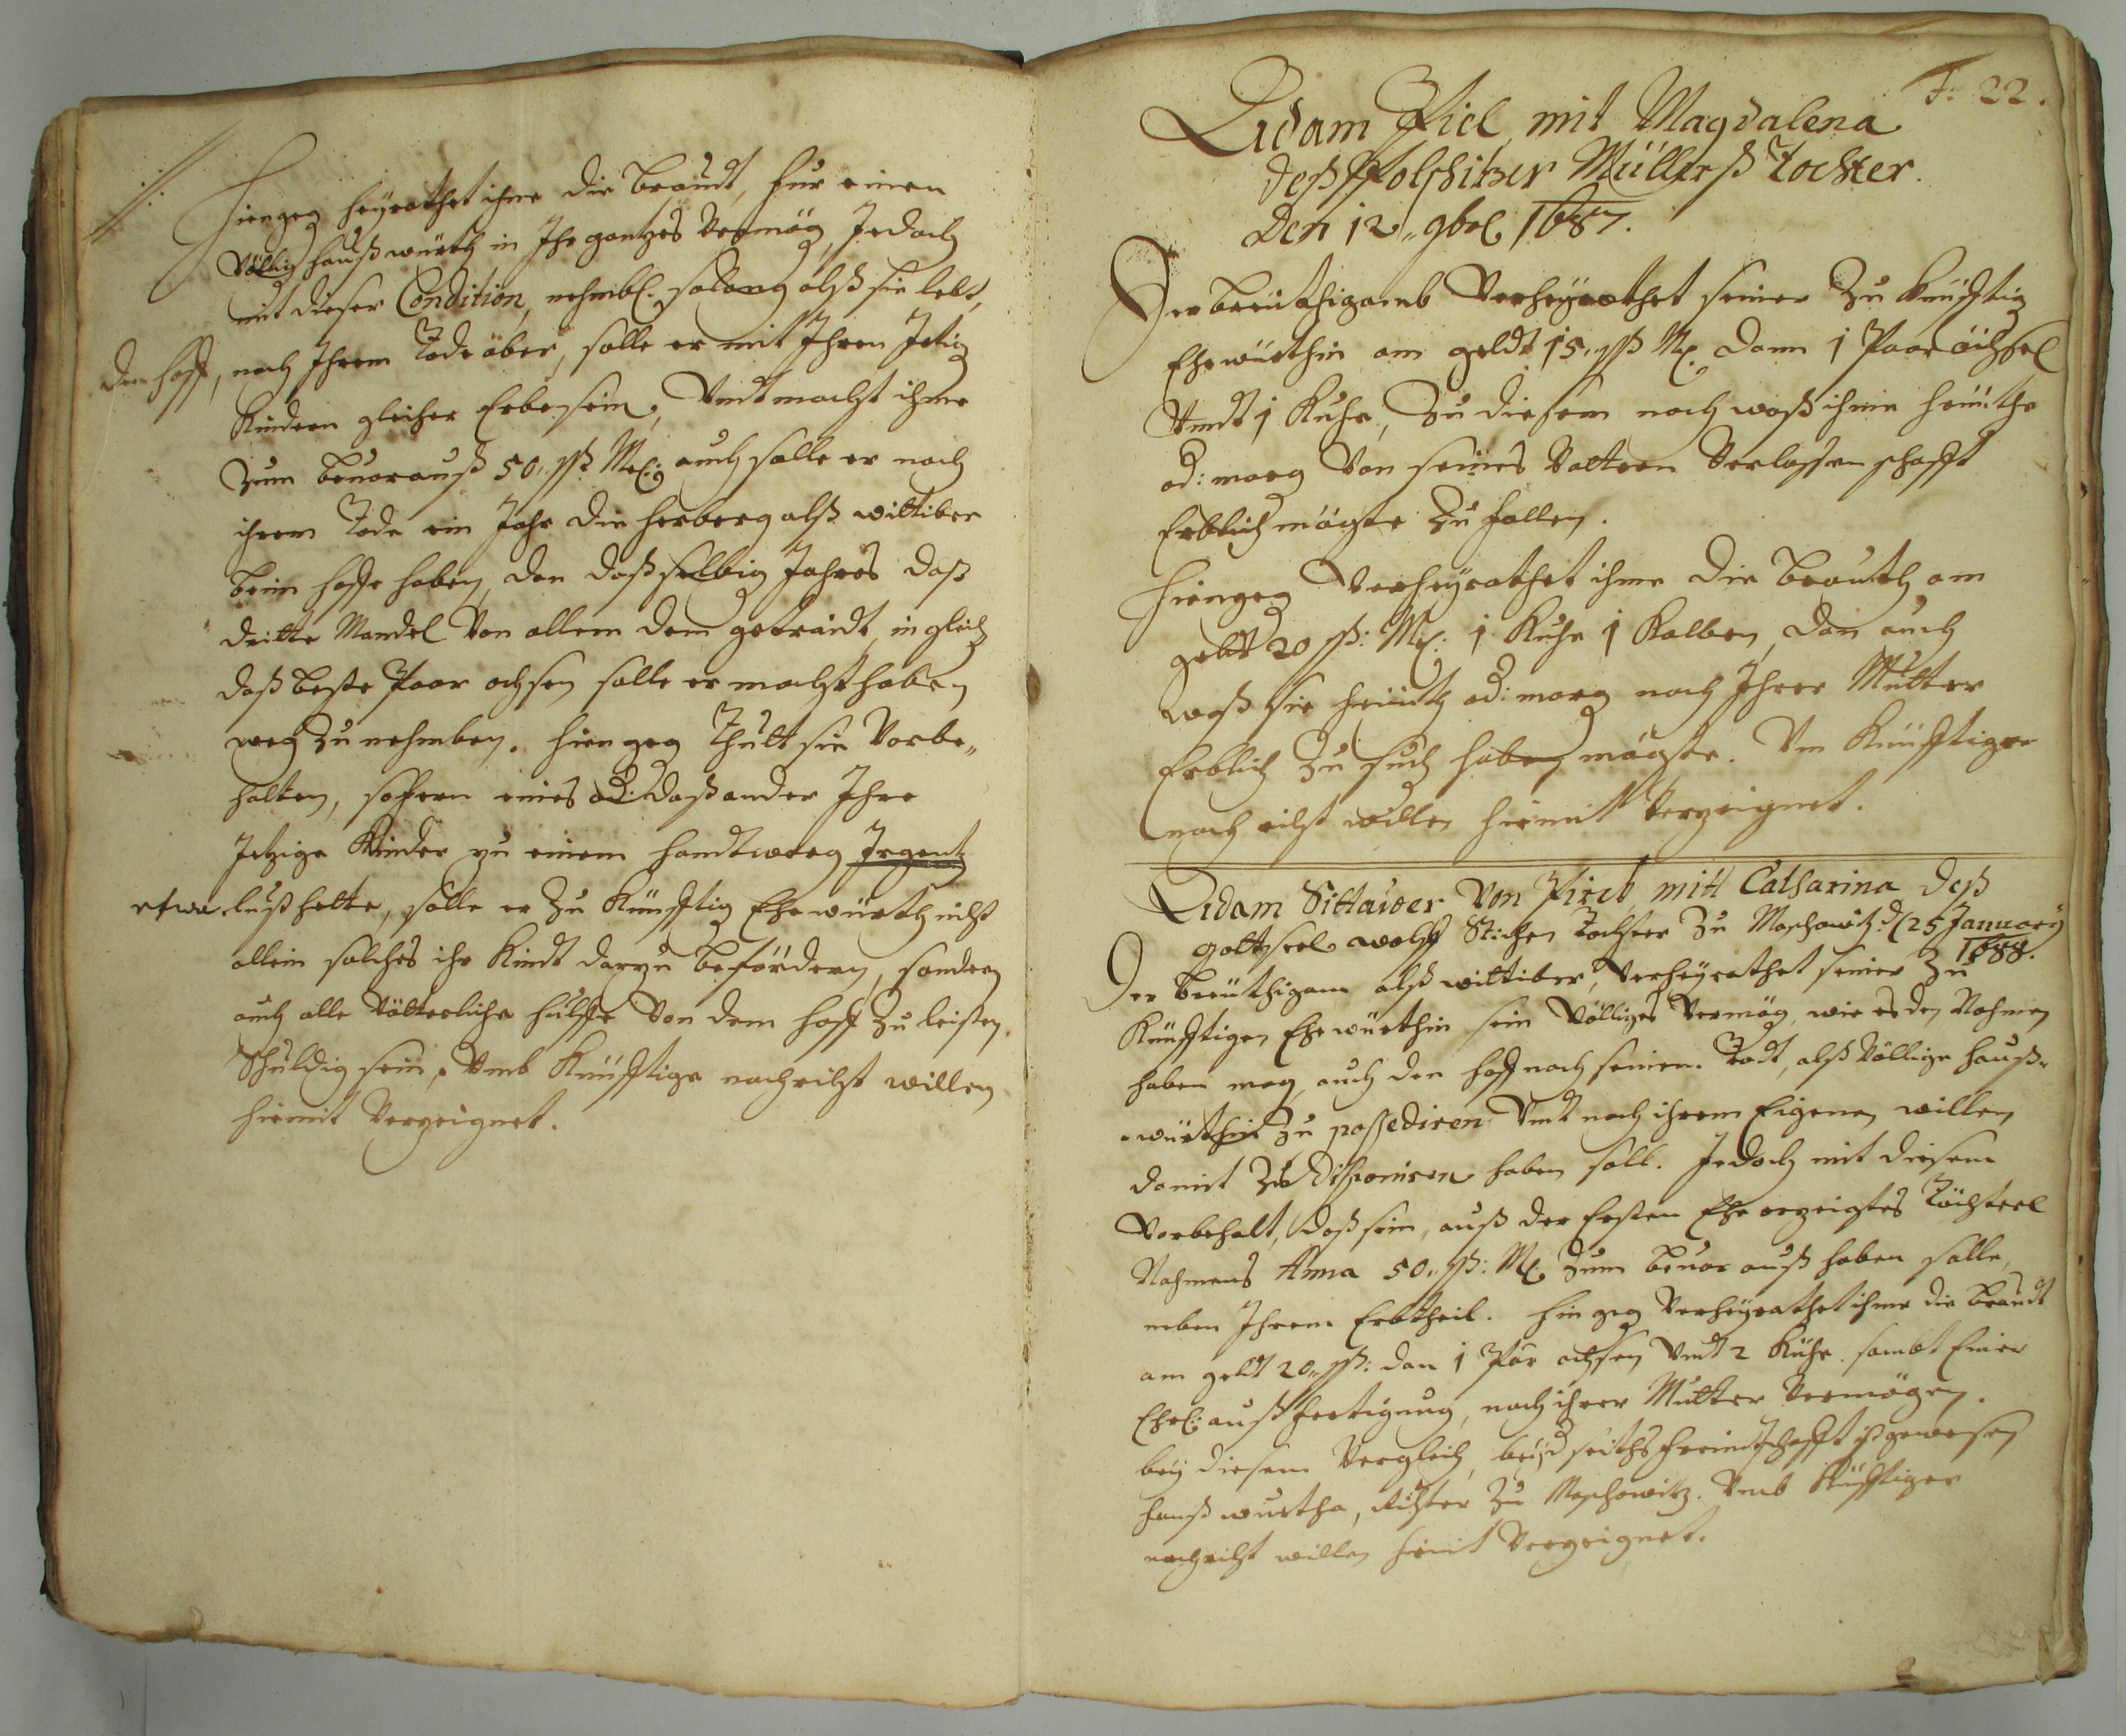 Hiengeg heÿrathet ihme die Braudt, für einen
völlig haußwürth in Ihr gantzes Vermög, Jedoch
mit dieser Condition, nehmbl. solang alß sie lebt,
den hoff, nach Ihrem Tode aber, solle er mit Ihren Jetzig
Kindern gleicher Erbe sein, Vndt macht ihme
Zum beuorauß 50 ßß Mß: auch solle er nach
ihrem Tode ein Jahr die herberg alß wittiber
beim hoffe haben, dan daß selbig Jahres daß
dritte Mandel Von allem dem getraidt, in gleich
daß beste Paar ochsen solle er macht haben
weg Zu nehmben. Hiengeg Thutt sie Vorbe„
halten, sofern eines od: daß ander Ihre
Jetzige Kinder zu einem handtwerg Irgent
etwa lust hette, solle er Zu Künfftig Ehewürth nicht
allein solches ihr Kindt darzu befördern, sondern
auch alle Vätterliche hülffe Von dem hoff Zu leisten
Schuldig sein, Vmb Künfftige nachricht willen
hiemit Verzeignet.
F: 22.
Adam Fiel mit Magdalena
deß Holschitzer Müllerß Tochter.
Den 12„ 9bꝛ 1687.
Der breüthigamb Verheÿrathet seiner Zu künfftig
Ehewürthin am geldt 15„ ßß Mß dann 1 Paar öichsel
Vndt 1 Kuhe, Zu diesem noch waß ihme heüithe
od: morg Von seines Vattern Verlassenschafft
Erblich mögte Zu fallen.
Hiengeg Verheÿrathet ihme die Brauth am
geldt 20 ßß: Mß: 1 Kuhe 1 Kalben, dan auch
waß sie heüith od: morg nach Ihrer Mutter
Erblich Zu such haben mögte. Vm Künfftiger
nachricht willen hiemit Verzeignet.
Adam Sittauer Von Fireb mitt Catharina deß
gottseel. wolff Tochter Zu Maschowitz d 25 January
1688.
Der breüthigam alß wittiber, Verheÿrathet seiner Zu
Künfftigen Ehewürthin sein Völliges Vermög, wie es den Nahmen
haben mag, auch den hoff nach seinem Todt, alß Völlige hauß„
„würthin Zu possediren Vndt nach ihrem Eigenen willen
damit Zu disponiren haben soll. Jedoch mit diesem
Vorbehalt, daß sein, auß der Ersten Ehe erzeigtes Töchterl
Nahmens Anna 50„ ßß: Mß Zum beuor auß haben solle,
neben Ihrem Erbtheil. Hin geg Verheÿrathet ihme die Braudt
am geldt 20„ ßß: dan 1 Par ochsen Vndt 2 Kühe sambt Einer
Ehrl: außfertigung, nach ihrer Mutter Vermögen.
beÿ diesem Vergleich, beÿd seiths freindtschafft ist gewesen
hanß wurtha, Richter Zu Maschowitz. Vmb künfftiger
nachricht willen hiemit Verzeignet.